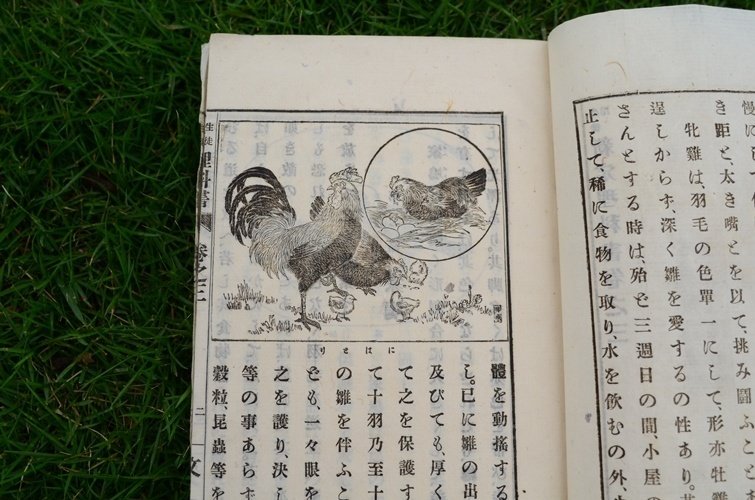 慢にして
き距と、太き嘴とを以て挑み鬪ふこと
牝雞は、羽毛の色單一にして、形亦牡雞
逞しからず、深く雛を愛するの性あり。
さんとする時は、殆ど三週日の間、小屋
止して、稀に食物を取り、水を飮むの外、
にはとり
體を動搖する
し。已に雛の出
及びても、厚く
て之を保護す
て十羽乃至十
の雛を伴ふこ
とも、一々眼を
之を護り、決し
等の事あらず
穀粒、昆蟲等を
生徒 理科書 卷之二 二 文